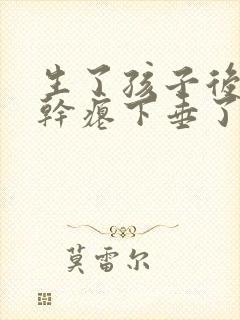 生了孩子後
幹癟下垂了
莫雷尔